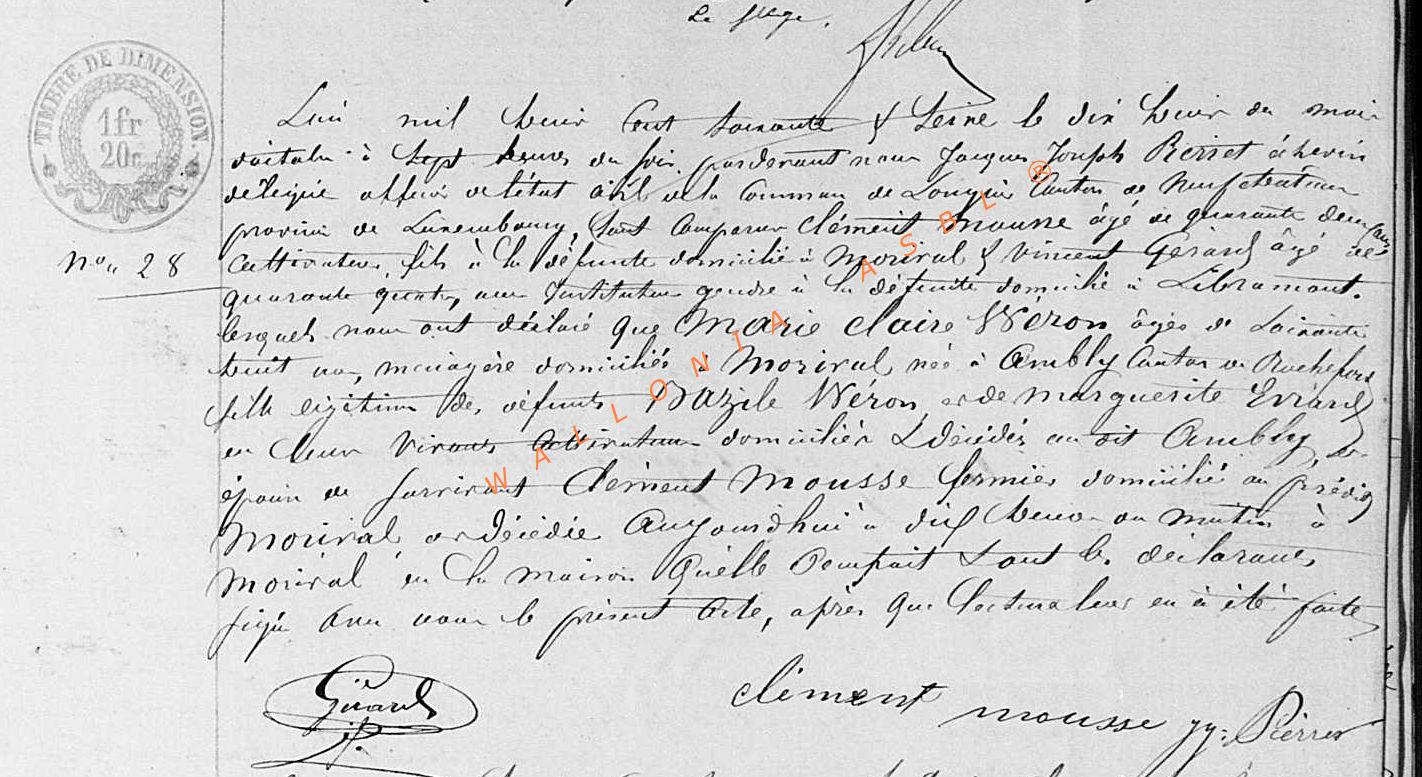 Le Juge,
TIMBRE DE DIMENSION.
1fr
20c.
L'an mil huit Cent soixante & seize le dix huit du mois
d'octobre à Sept heures du soir pardevant nous Jacques Joseph Pierret échevin
délégué officier de l'état civil de la Commune de Canton de Neufchateau
province de Luxembourg, sont comparus Clément Mousse âgé de quarante deux ans
Cultivateur, fils à la défunte domicilié à Morival & Vincent Gérard âgé de
N° 28
quarante quatre, ans Instituteur gendre à la défunte domicilié à Libramont.
lesquels nous ont déclaré que Marie Claire Wéron âgée de soixante
huit ans, ménagère domiciliée à Morival née à Ambly Canton de Rochefort
fille légitime des défunts Bazile Wéron et de Marguerite Evrard
en leur vivant Cultivateurs domiciliés & décédés au dit Ambly, et
épouse de survivant Clément Mousse fermier domicilié au prédit
Morival et décédée Aujourd'hui à dix heures du matin à
Morival en la maison qu'elle & sont les déclarants
signé avec nous le présent acte, après que lecture leur en a été faite
Gérard
Clément Mousse
JJ: Pierret
WALLONIA ASBL ®